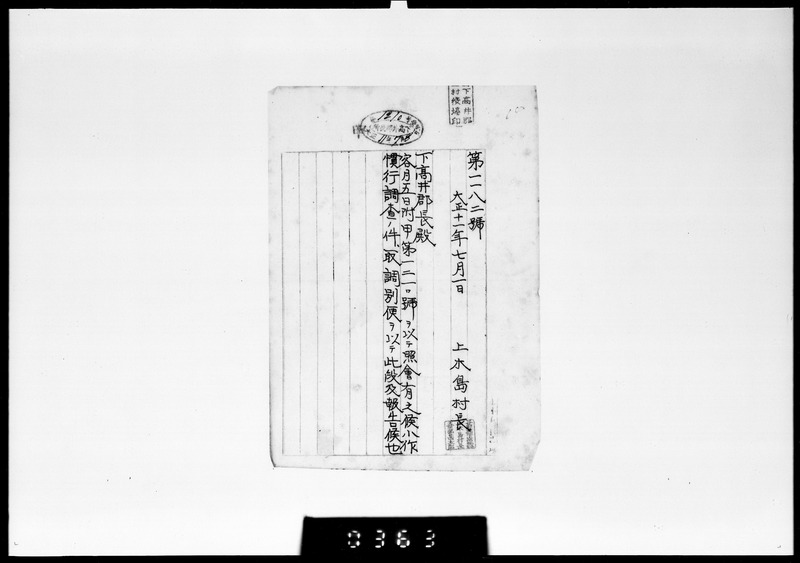 下高井郡
第一一八二號
大正十一年七月一日
上木島村長
下高井郡長殿
客月五日附甲第一二一〇號ヲ以テ照會有之候小作
慣行調查ノ件取調別便ヲ以テ此段及報告候也
0363